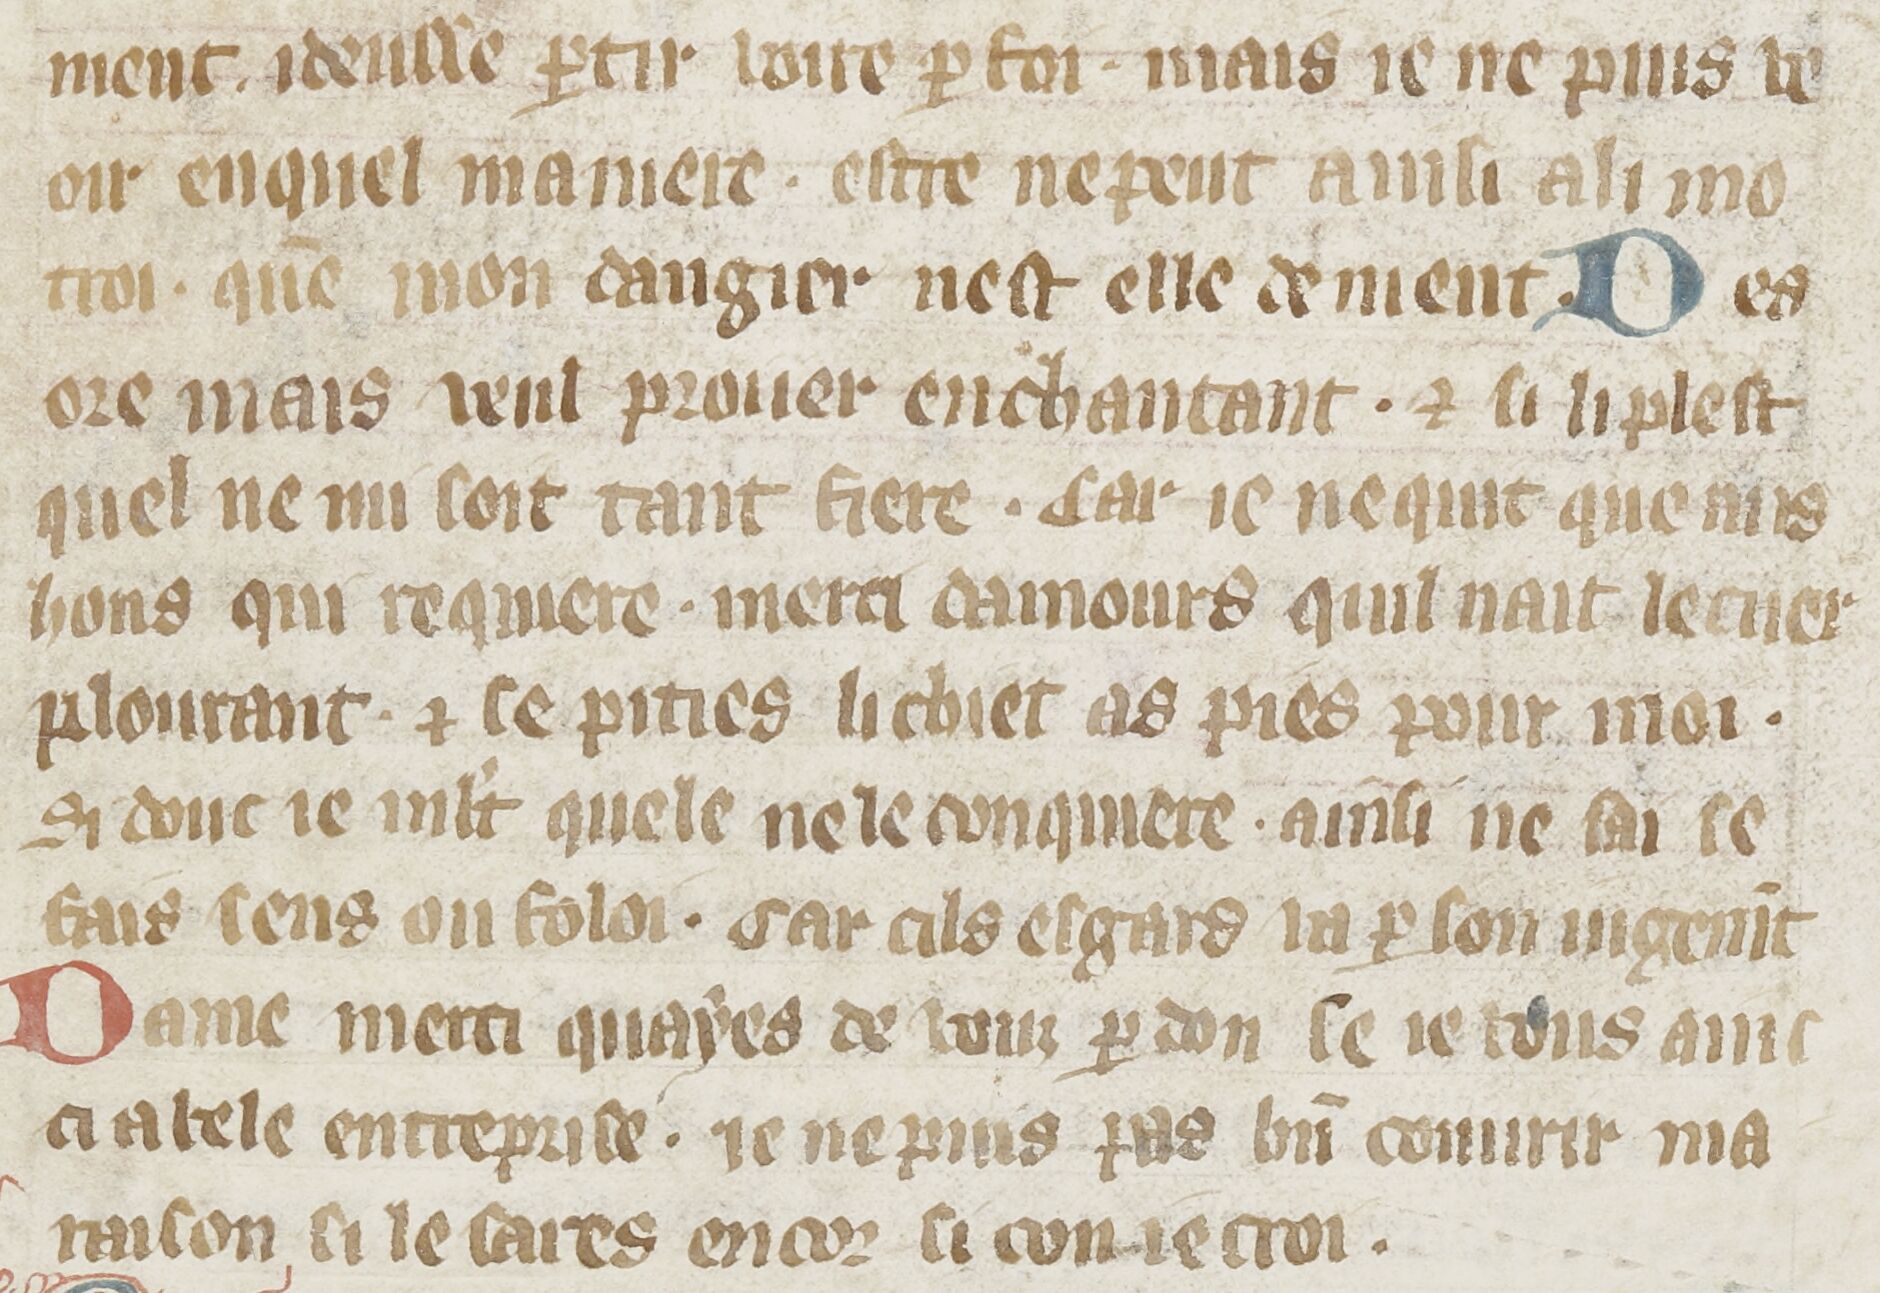 ment. ideusse ꝑtir voire ꝑ foi · mais ie ne puis ve
oir enquel maniere · estre nepeut ainsi ali mo
troi · quē mon dangier nest elle de nient. Des
ore mais veul prouer enchantant · ⁊ si li plest
quel ne mi soit tant fiere · Car ie nequit que nus
hons qui requiere · merci damours quil nait lecuer
plourant · ⁊ se pities lichiet as pies pour moi ·
Si douc ie quele nele conquiere · ainsi ne sai se
fais sens ou foloi · Car cils esgars va ꝑ son
Dame merci de vous ꝑdon se ie vous
ci a bele entreprise · ie nepuis pas bn̄ couurir ma
raison si le encor si con ie croi ·